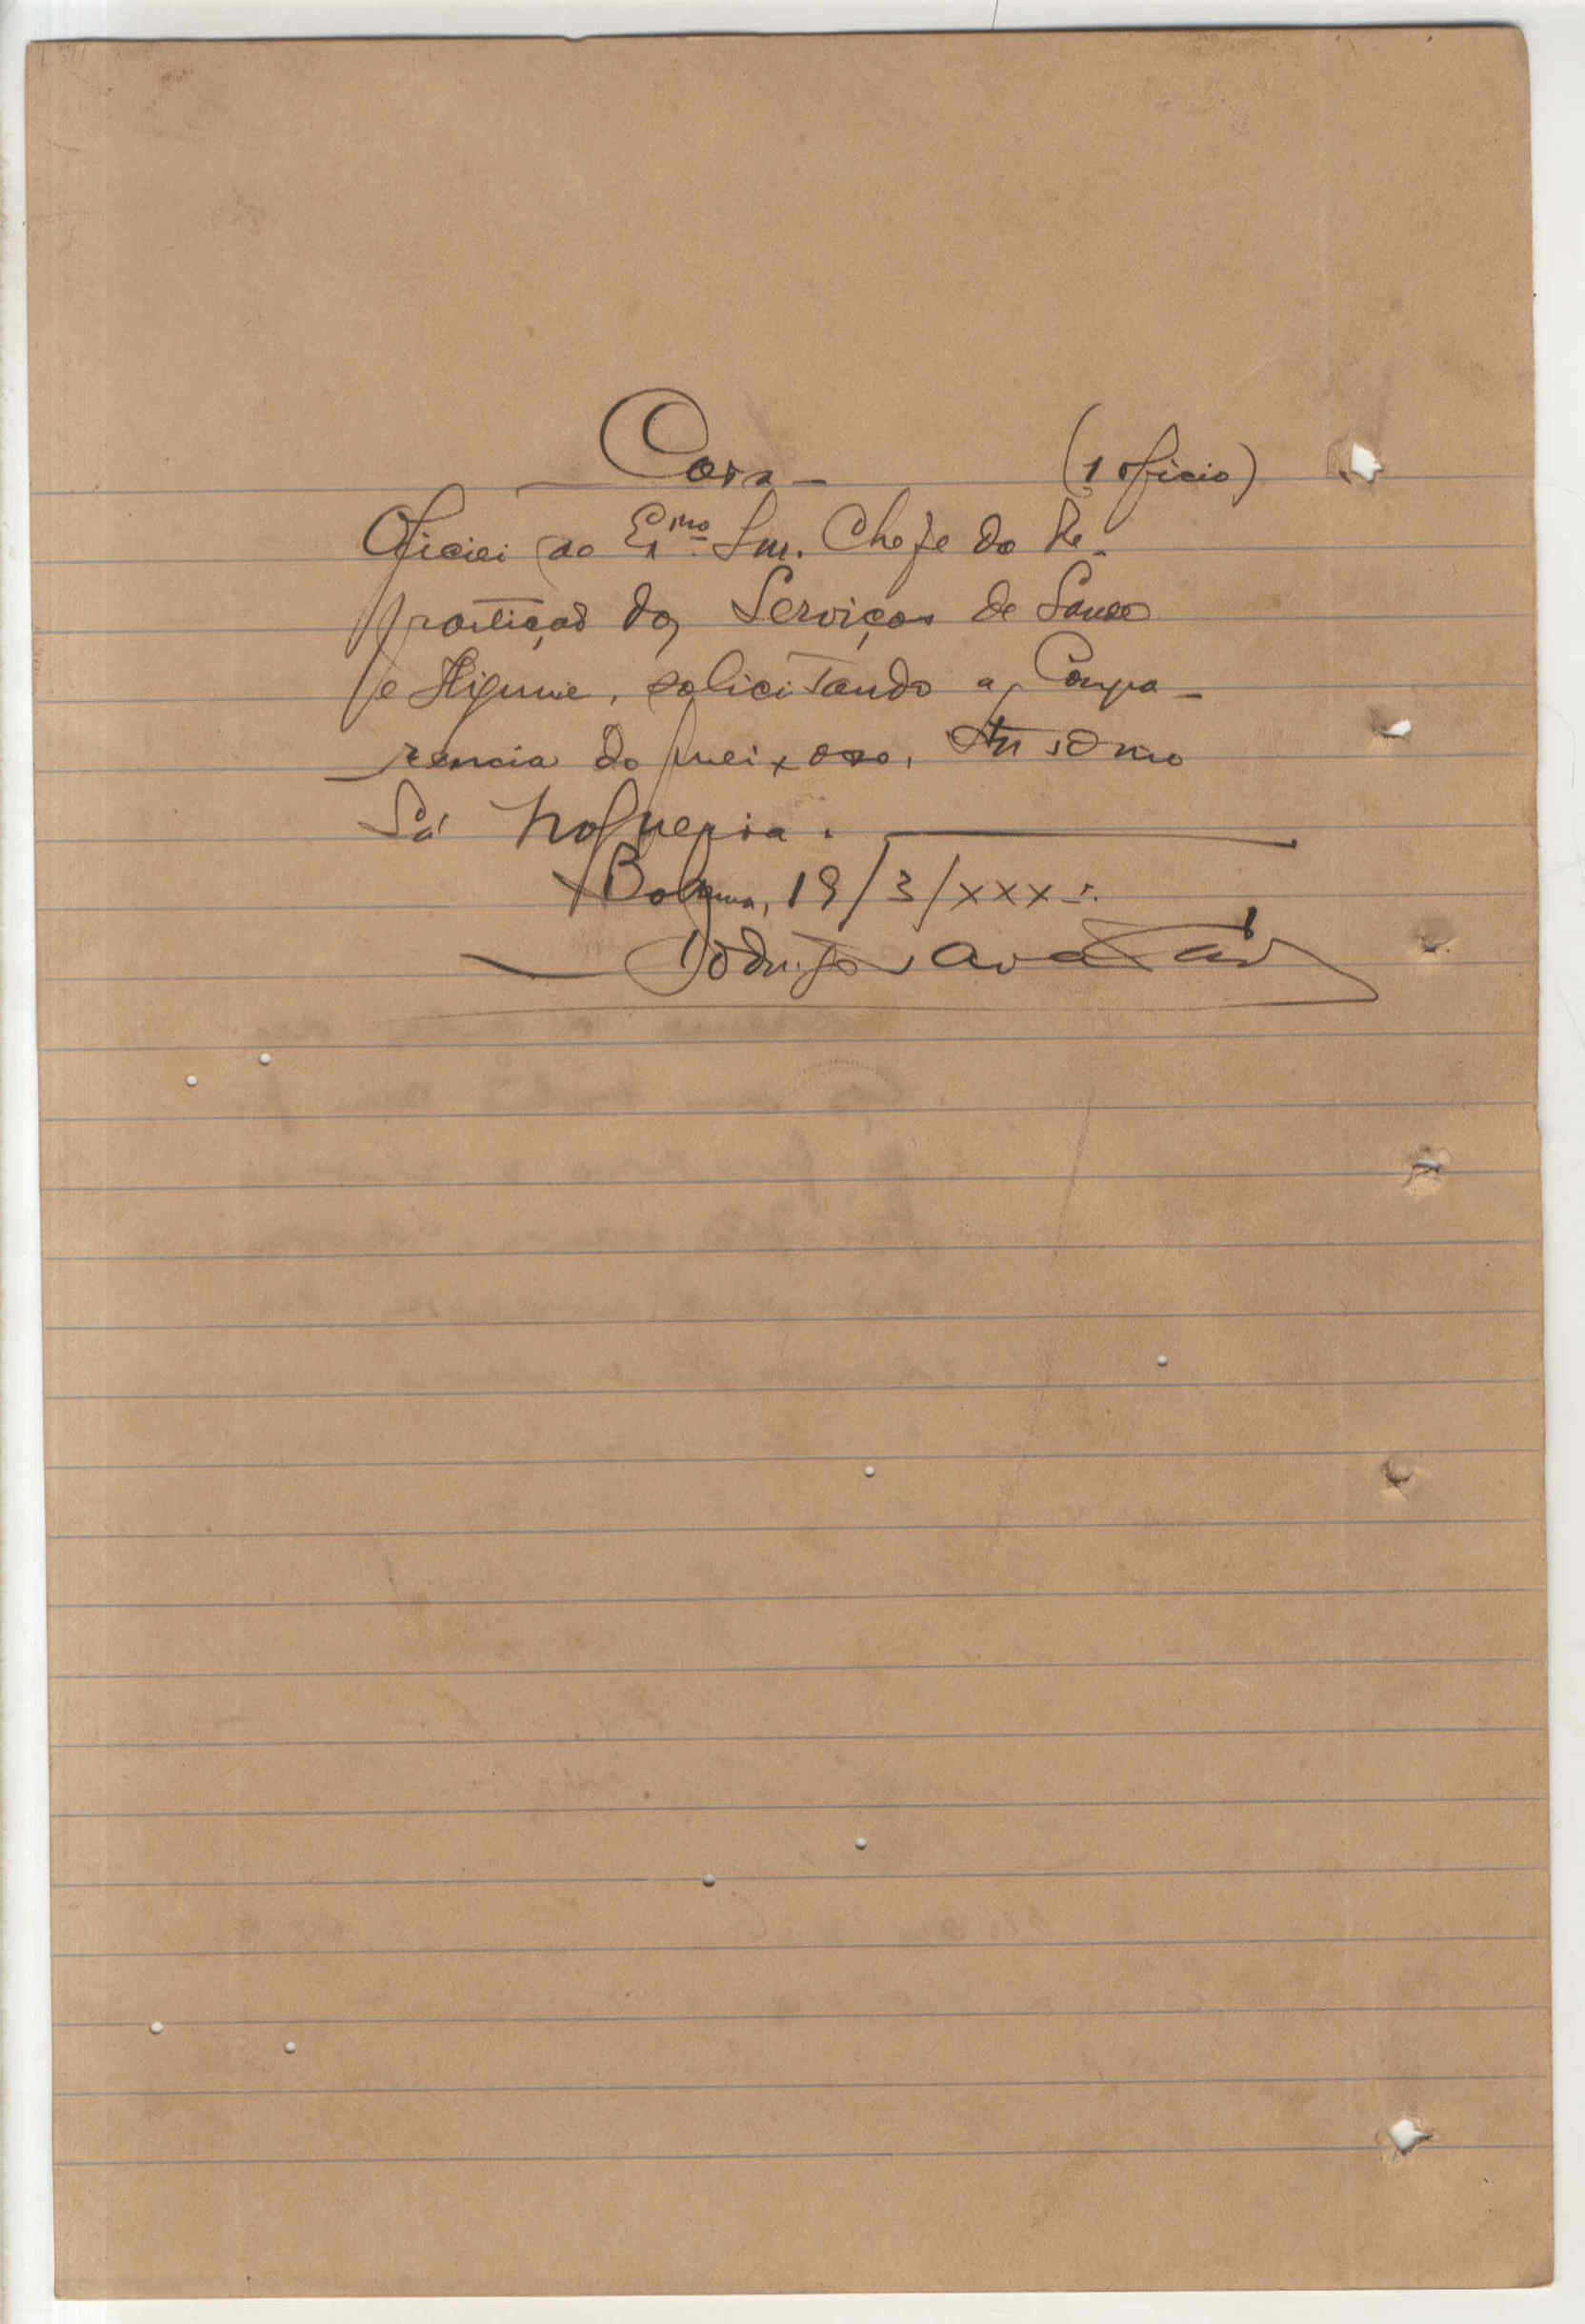 Cota (1 oficio)
Oficiei ao Exmo. Snr. Chefe da Re-
partiçaõ dos Serviços de Saude
e Higiene, solicitando a Compa-
rencia do queixoso, Antonio
Sá Nogueira.
Bolama, 19/3/XXX
Rodrigo